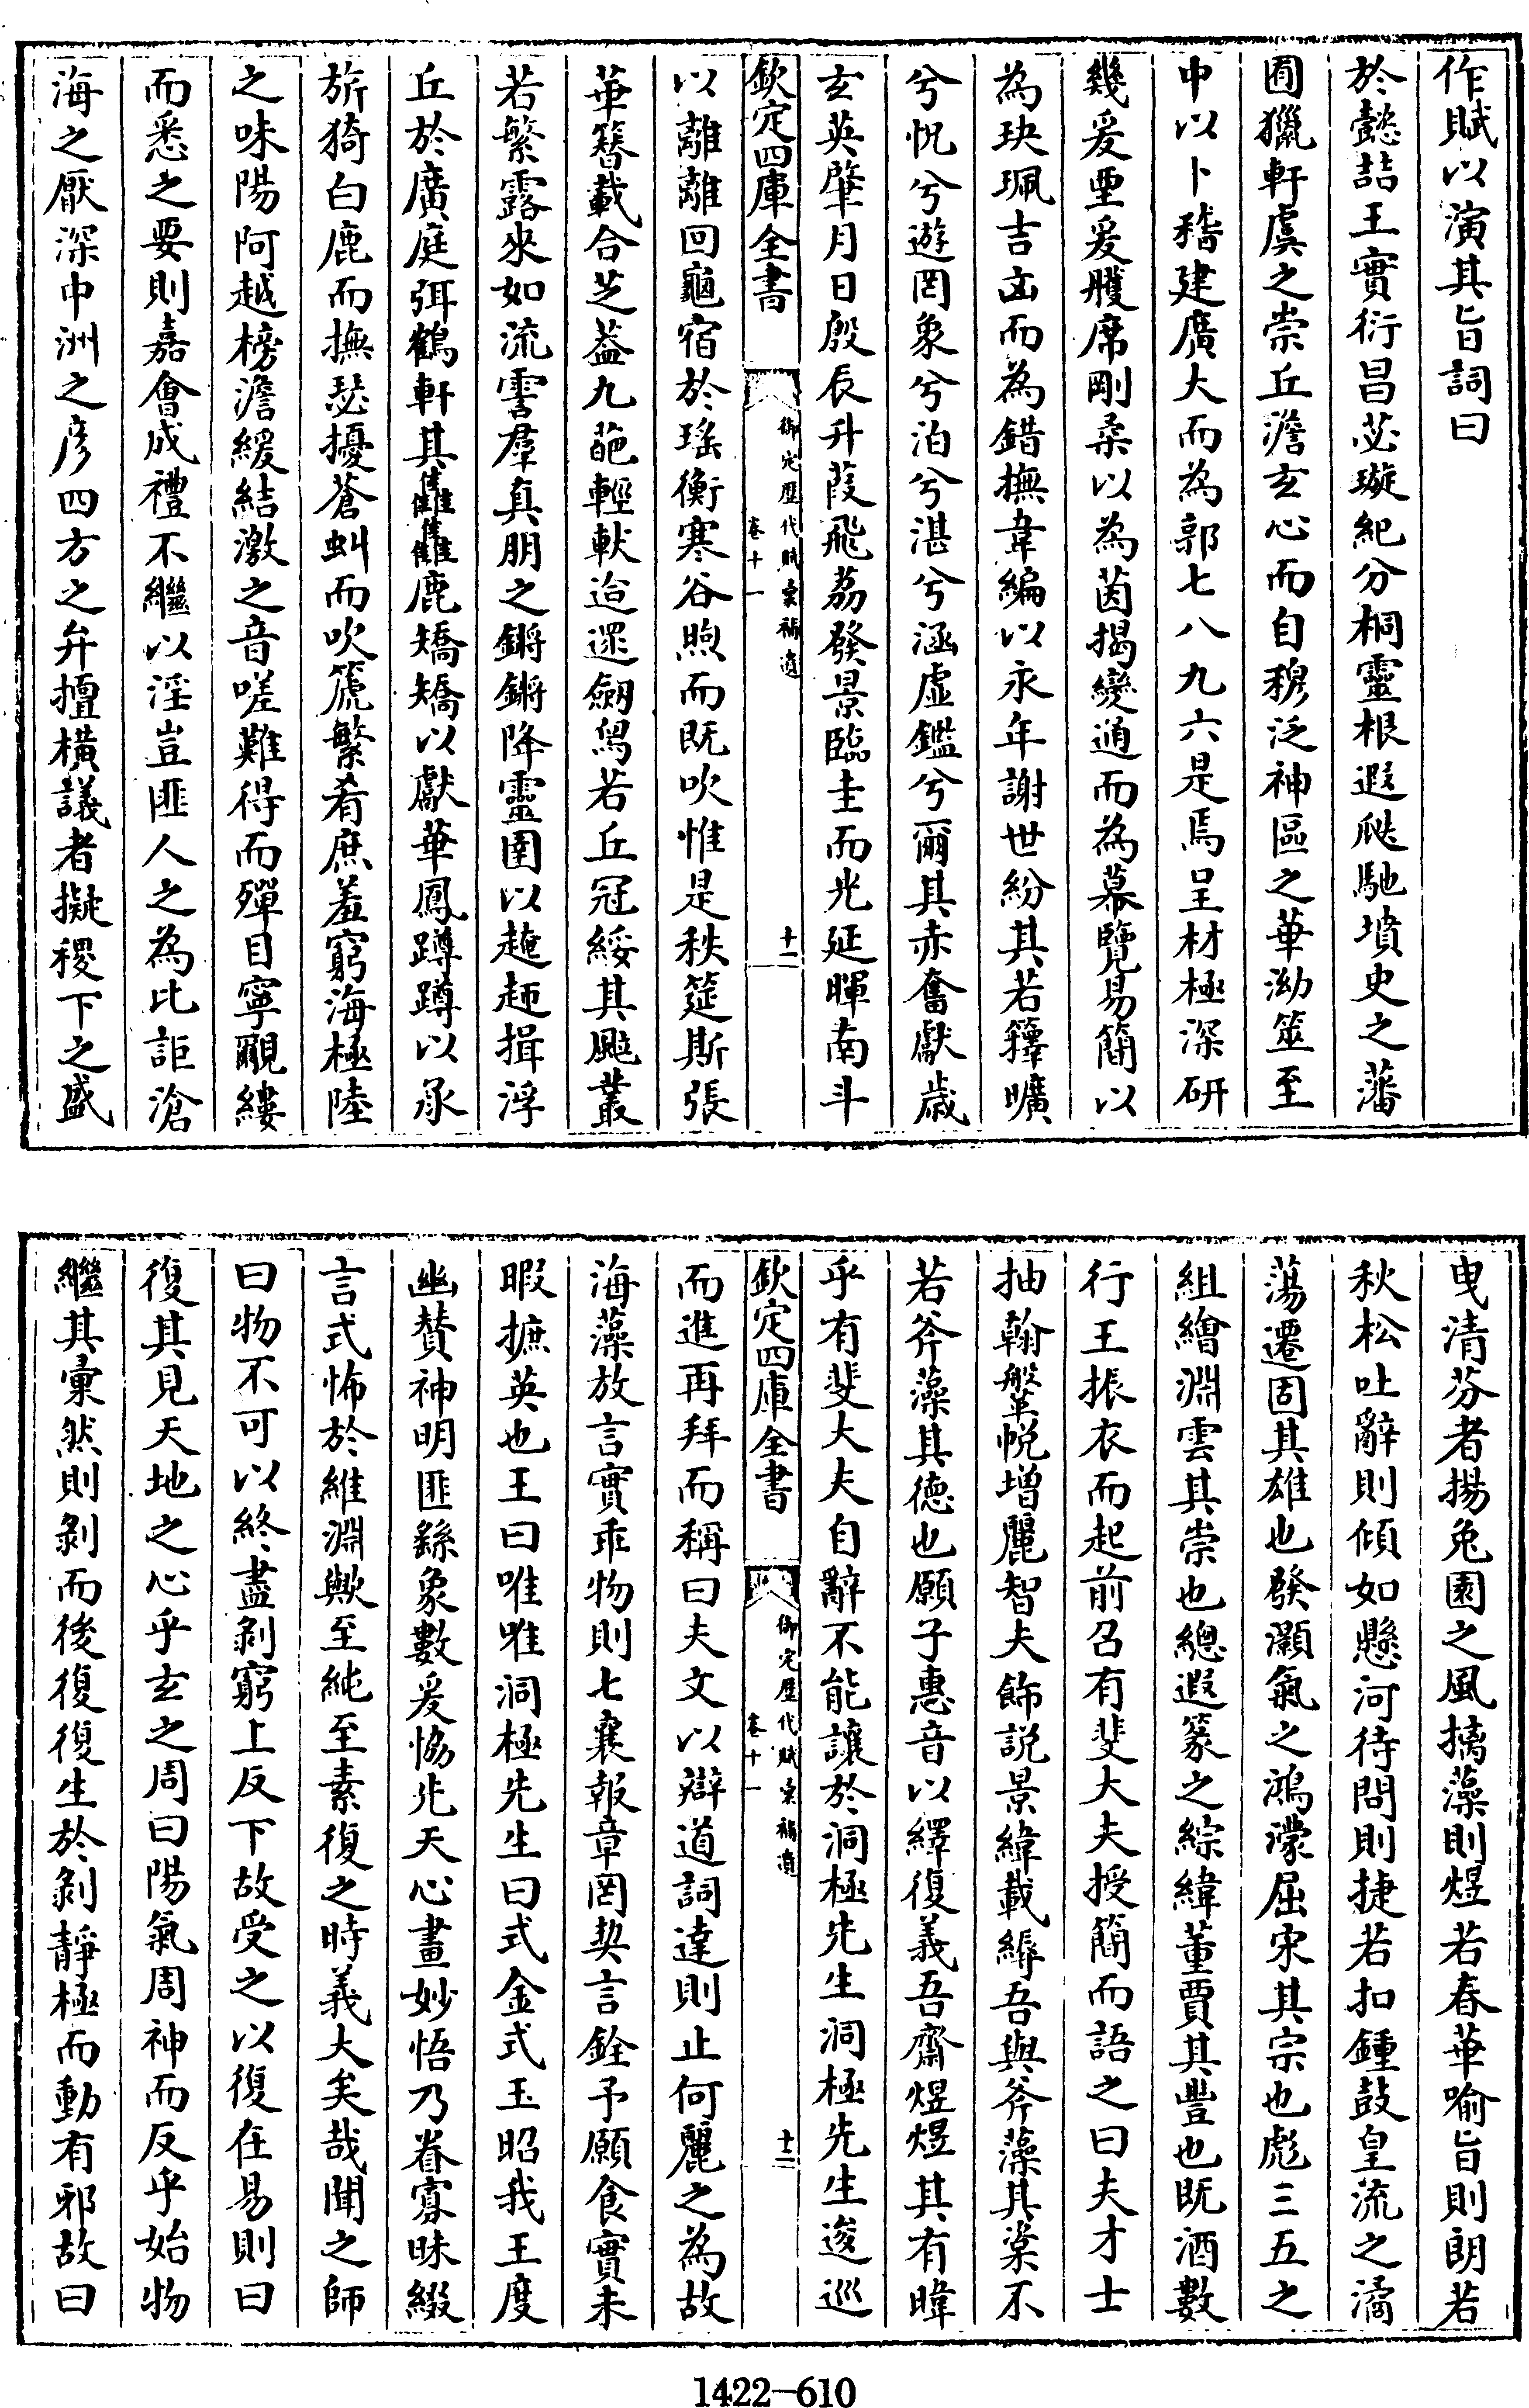 作賦以演其旨詞曰
於懿喆王實衍昌苾璇紀分桐靈根遐瓞馳墳史之藩
囿獵軒虞之崇丘澹玄心而自穆泛神區之華泑筮至
中以卜稽建廣大而為郭七八九六是焉呈材極深研
幾爰垔爰雘席剛柔以為茵揭變通而為幕覽易簡以
為玦珮吉凶而為錯撫韋編以永年謝世紛其若籜曠
兮怳兮遊罔象兮泊兮湛兮涵虛鑑兮爾其赤奮獻歲
玄英肇月日殷辰升葭飛荔發景臨圭而光延暉南斗
欽定四庫全書
御定歷代賦彙補遺
卷十一
十一
以離離回龜宿於瑤衡寒谷煦而既吹惟是秩筵斯張
華簪載合芝蓋九葩輕軑迨遝劒舄若丘冠綏其颭叢
若繁露來如流霅羣真朋之鏘鏘降靈圉以𧼮𧼮揖浮
丘於廣庭弭鶴軒其雥雥鹿矯矯以獻華鳳蹲蹲以承
旂猗白鹿而撫瑟擾蒼虯而吹篪繁肴庶羞窮海極陸
之味陽阿越榜澹緩結激之音嗟難得而殫目寧覼縷
而悉之要則嘉會成禮不繼以淫豈匪人之為比詎滄
海之厭深中洲之彥四方之弁擅橫議者擬稷下之盛
曳清芬者揚兔園之風摛藻則煜若春華喻旨則朗若
秋松吐辭則傾如懸河待問則捷若扣鍾鼓皇流之潏
蕩遷固其雄也發灝氣之鴻濛屈宋其宗也彪三五之
組繪淵雲其崇也總遐篆之綜緯董賈其豐也既酒數
行王振衣而起前召有斐大夫授簡而語之曰夫才士
抽翰鞶帨增麗智夫飾説景緯載縟吾與斧藻其楶不
若斧藻其德也願子惠音以繹復義吾齋煜煜其有暐
乎有斐大夫自辭不能讓於洞極先生洞極先生逡巡
欽定四庫全書
御定歷代賦彙補遺
卷十一
十二
而進再拜而稱曰夫文以辯道詞達則止何麗之為故
海藻放言實乖物則七襄報章罔契言銓予願食實未
暇摭英也王曰唯唯洞極先生曰式金式玉昭我王度
幽贊神明匪繇象數爰恊兆天心畫妙悟乃眷寡昧綴
言式怖於維淵歟至純至素復之時義大矣哉聞之師
曰物不可以終盡剝窮上反下故受之以復在易則曰
復其見天地之心乎玄之周曰陽氣周神而反乎始物
繼其彙然則剝而後復復生於剝靜極而動有邪故曰
1422—610